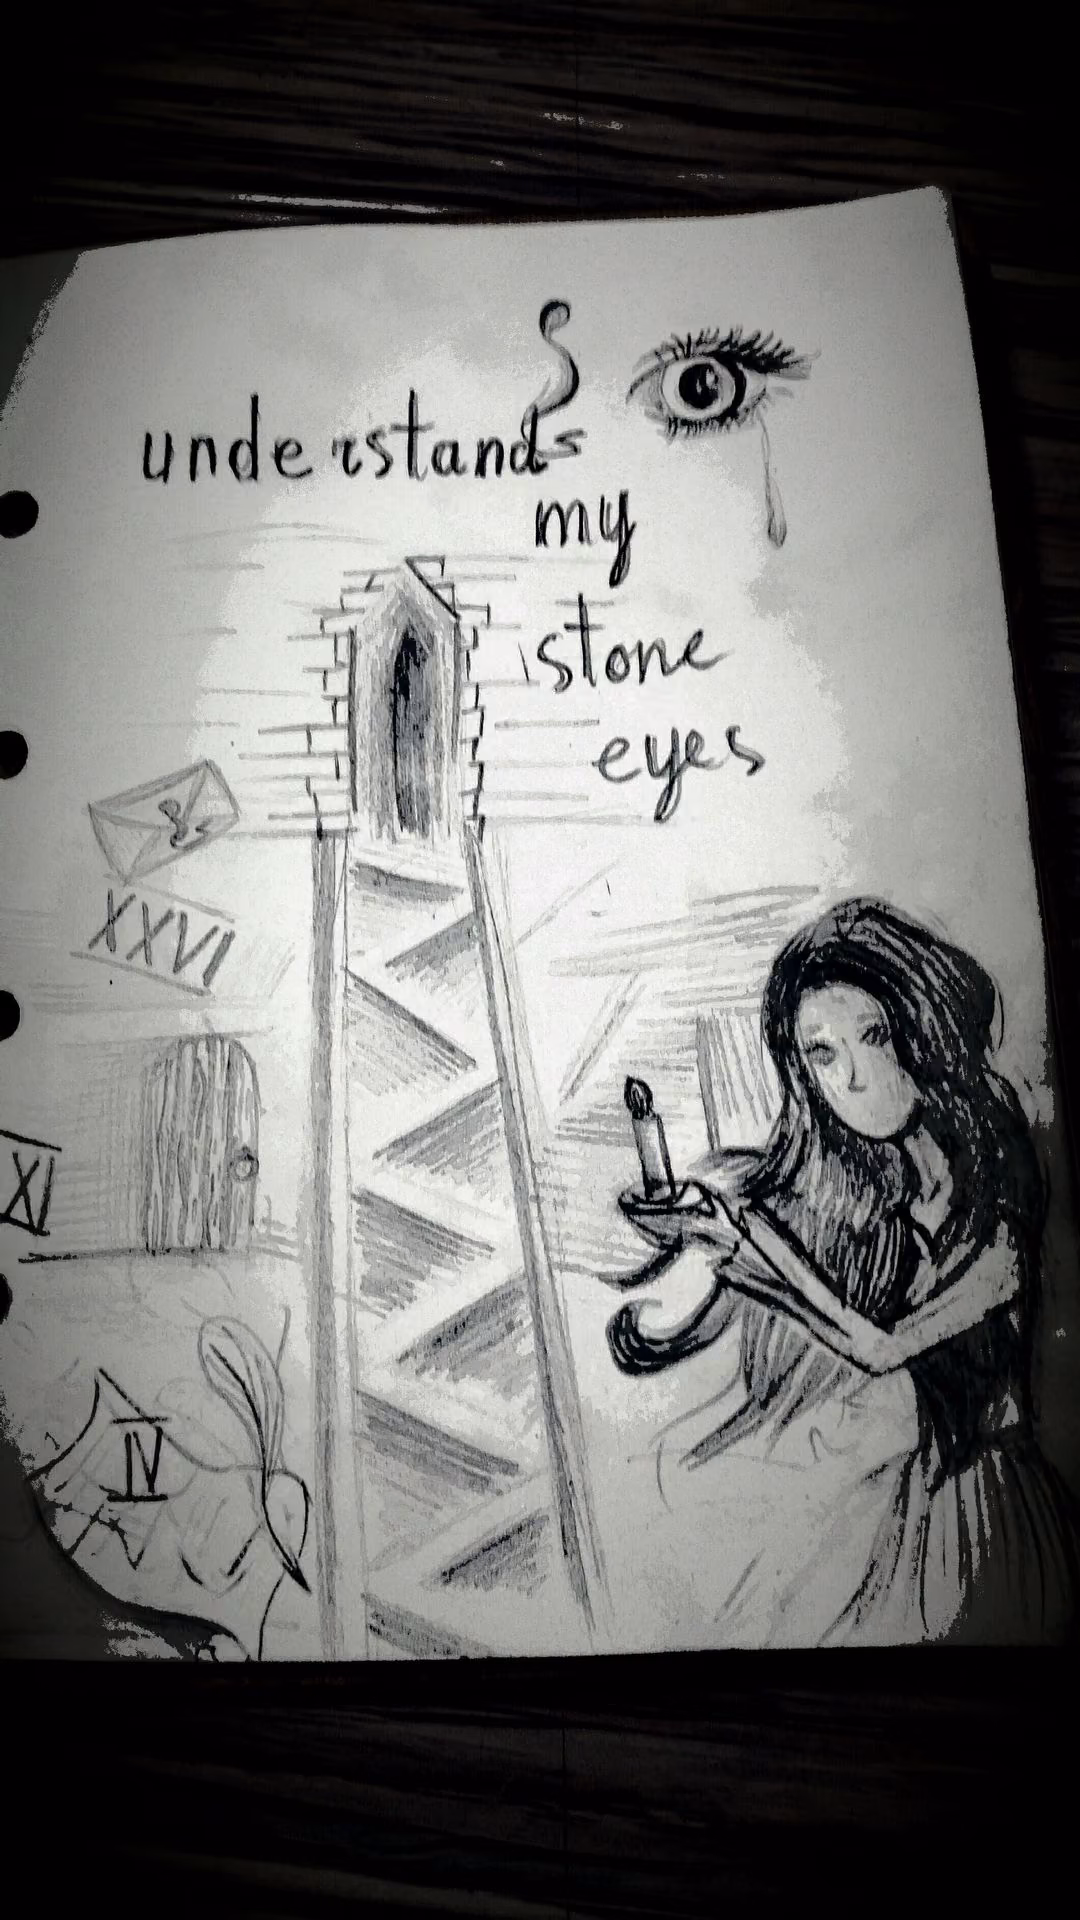 understands
my
stone
eyes
XXVI
XI
IV